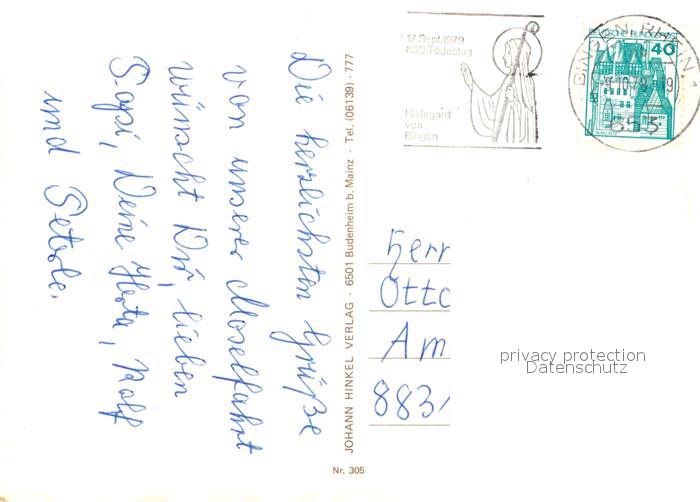 Die herzlichsten Grüße
von unserer Moselfahrt
wünscht Dir, lieben
Deine Herta, Rolf
und
JOHANN HINKEL VERLAG · 6501 Budenheim b. Mainz · Tel. (06139) · 777
Nr. 305
17. Sept. 1979
800. Todestag
Hildegard
von
Bingen
DEUTSCHE BUNDESPOST
40
BINGEN, RHEIN 1
Herr
Otto
Am
883
privacy protection
Datenschutz